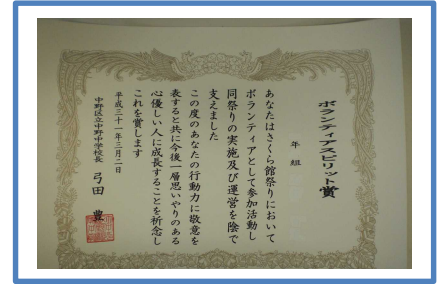 ボランティアスピリット賞
年 組
あなたはさくら館祭りにおいて
ボランティアとして参加活動し
同祭りの実施及び運営を陰で
支えました
この度のあなたの行動力に敬意を
表すると共に今後一層思いやりのある
心優しい人に成長することを祈念し
これを賞します
平成三十一年三月二日
中野区立中野中学校長 弓田 豊